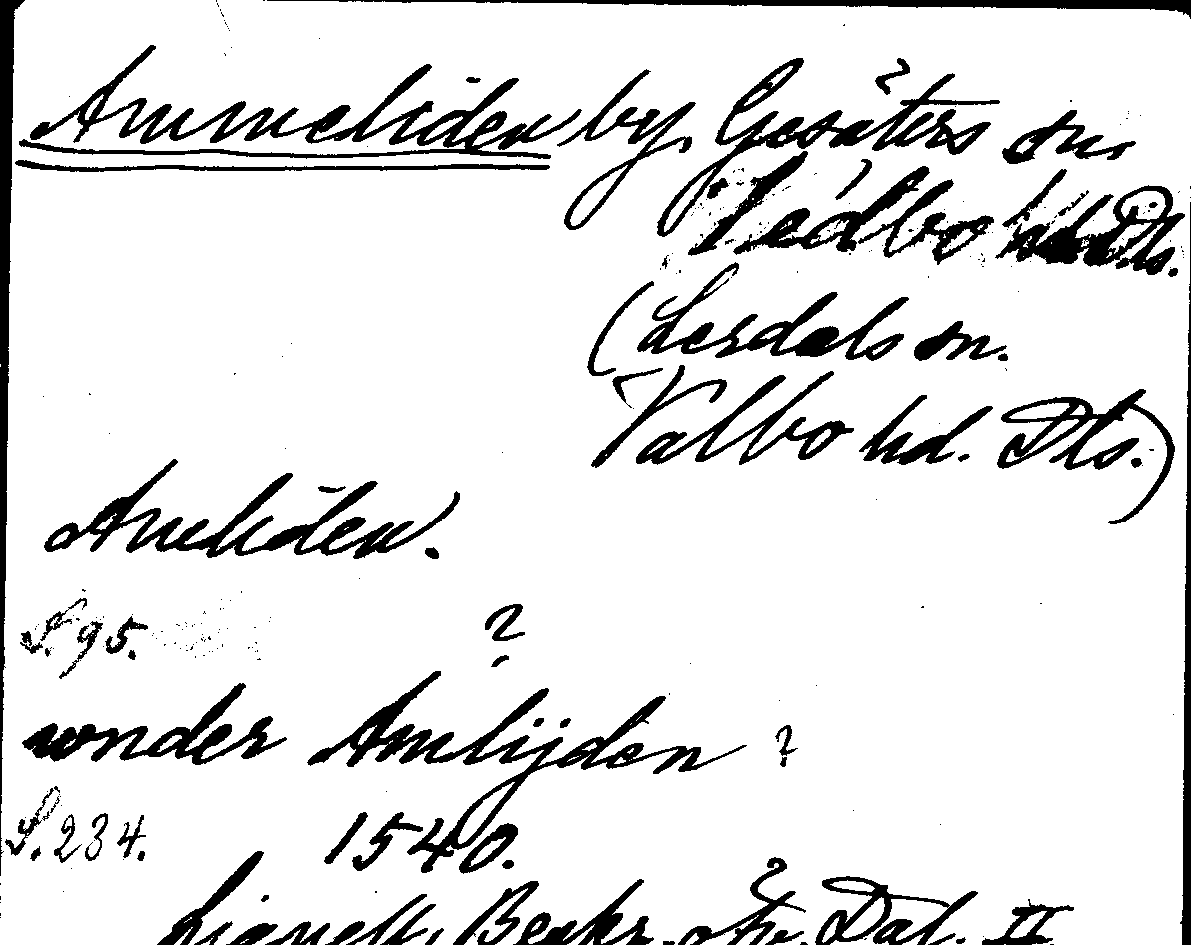 Ammeliden by, Gesäters sn.
Vedbo hd Dls.
(Lerdals sn.
Valbo hd. Dls.)
Ameliden.
S. 95. ?
wnder Amlijden ?
S. 234. 1540.
Lignell, Beskr. öfv. Dal. II